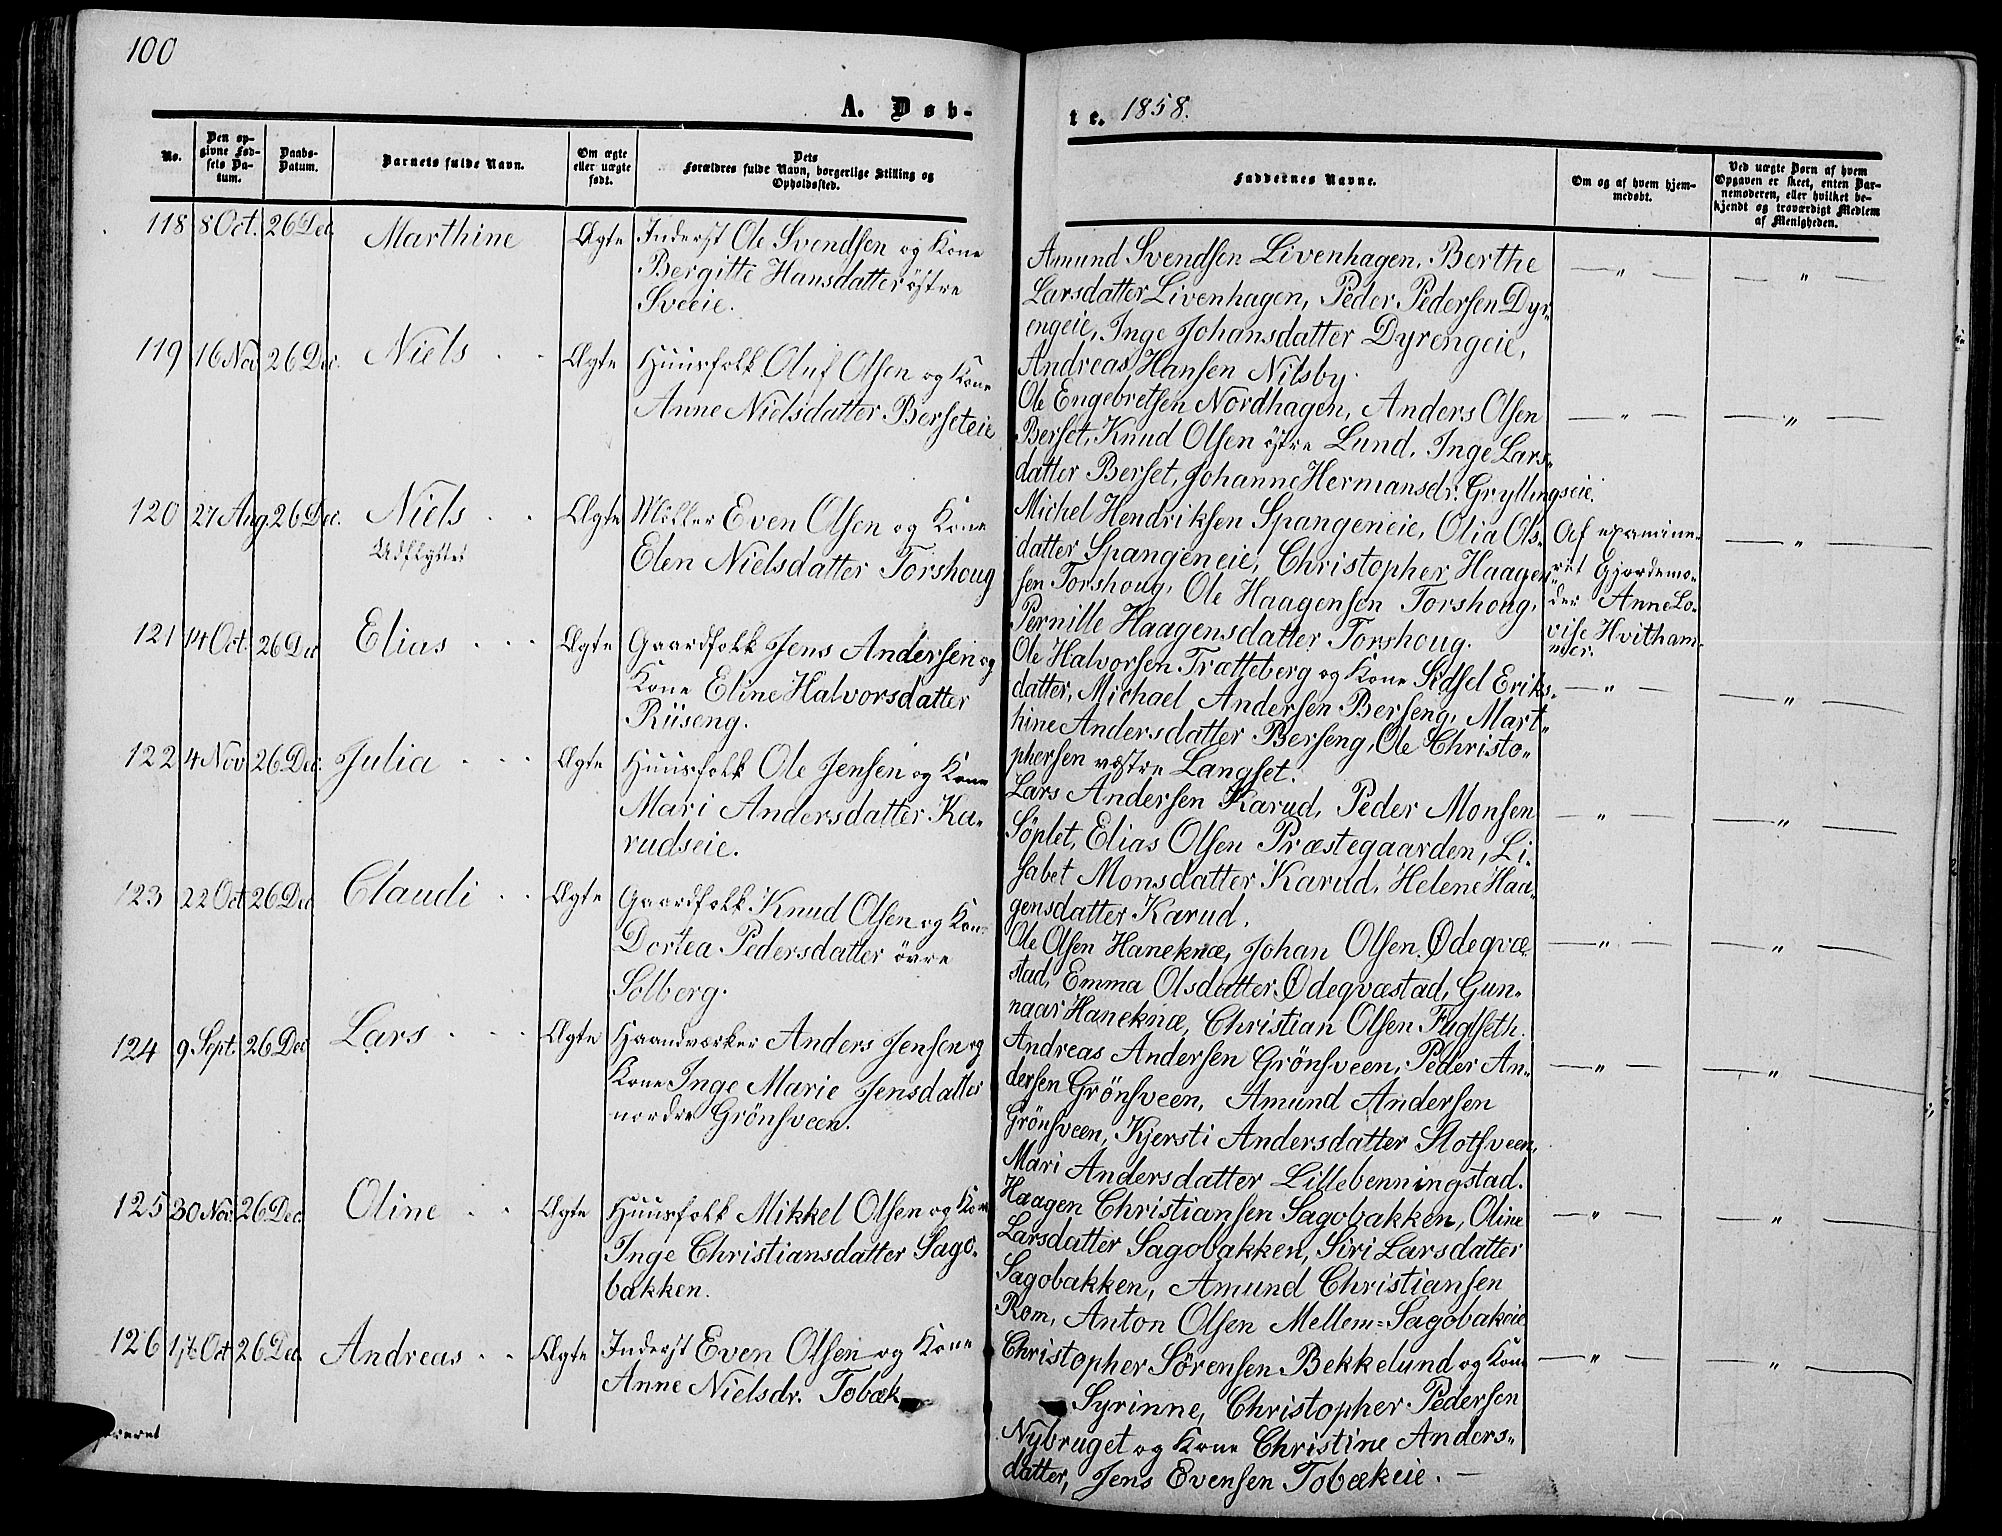 100
A. Døb-
te. 1858.
No.
Den op-
givne Fød-
sels Da-
tum.
Daabs-
Datum.
Barnets fulde Navn.
Om ægte
eller uægte
født.
Dets
Forældres fulde Navn, borgerlige Stilling og
Opholdssted.
Faddernes Navne.
Om og af hvem hjem-
medøbt.
Ved uægte Børn af hvem
Opgaven er skeet, enten Bar-
nemoderen, eller hvilket be-
kjendt og troværdigt Medlem
af Menigheden.
118 8 Oct. 26 Dec. Marthine Ægte Inderst Ole Svendsen og Kone
Bergitte Hansdatter østre
Sveeie.
Amund Svendsen Livenhagen, Berthe
Larsdatter Livenhagen, Peder Pedersen Dyr-
engeie, Inge Johansdatter Dyrengeie,
Andreas Hansen Nilsby.
119 16 Nov 26 Dec. Niels Ægte Huusfolk Oluf Olsen og Kone
Anne Nielsdatter Berseteie
Ole Engebretsen Nordhagen, Anders Olsen
Berset, Knud Olsen østre Lund, Inge Lars-
datter Berset, Johanne Hermansdr. Gryllingseie.
120 27 Aug 26 Dec. Niels Ægte Möller Even Olsen og Kone
Udflyttet
Elen Nielsdatter Torshoug
Michel Hendriksen Spangeneie, Olia Ols-
datter Spangeneie, Christopher Haagen-
sen Torshoug, Ole Haagensen Torshoug,
Pernille Haagensdatter Torshoug.
Af examine-
ret Gjordemo-
der Anne Lo-
vise Hvitham-
mer.
121 14 Oct. 26 Dec Elias Ægte Gaardfolk Jens Andersen og
Kone Eline Halvorsdatter
Riiseng.
Ole Halvorsen Trætteberg og Kone Sidsel Eriks-
datter, Michael Andersen Berseng, Mart-
hine Andersdatter Berseng, Ole Christo-
phersen vestre Langset.
122 4 Nov 26 Dec. Julia Ægte Huusfolk Ole Jensen og Kone
Mari Andersdatter Ka-
rudseie.
Lars Andersen Karud, Peder Monsen
Söplet, Elias Olsen Præstegaarden, Li-
sabet Monsdatter Karud, Helene Haa-
gensdatter Karud.
123 22 Oct 26 Dec. Claudi Ægte Gaardfolk Knud Olsen og Kone
Dortea Pedersdatter övre
Solberg.
Ole Olsen Haneknæ, Johan Olsen Ødeqvæ-
stad, Emma Olsdatter Ødeqvæstad, Gun-
naar Haneknæ, Christian Olsen Fuglseth.
124 9 Sept. 26 Dec Lars Ægte Haandværker Anders Jensen og
Kone Inge Marie Jensdatter
nordre Grönsveen.
Andreas Andersen Grönsveen, Peder An-
dersen Grönsveen, Amund Andersen
Grönsveen, Kjersti Andersdatter Slotsveen,
Mari Andersdatter Lillebenningstad.
125 30 Nov. 26 Dec. Oline Ægte Huusfolk Mikkel Olsen og Kone
Inge Christiansdatter Sago-
bakken.
Haagen Christiansen Sagobakken, Oline
Larsdatter Sagobakken, Siri Larsdatter
Sagobakken, Amund Christiansen
Rom, Anton Olsen Mellem-Sagobakeie
126 17 Oct 26 Dec. Andreas Ægte Inderst Even Olsen og Kone
Anne Nielsdr. Tobæk
Christopher Sörensen Bekkelund og Kone
Syrinne, Christopher Pedersen
Nybruget og Kone Christine Anders-
datter, Jens Evensen Tobækeie.